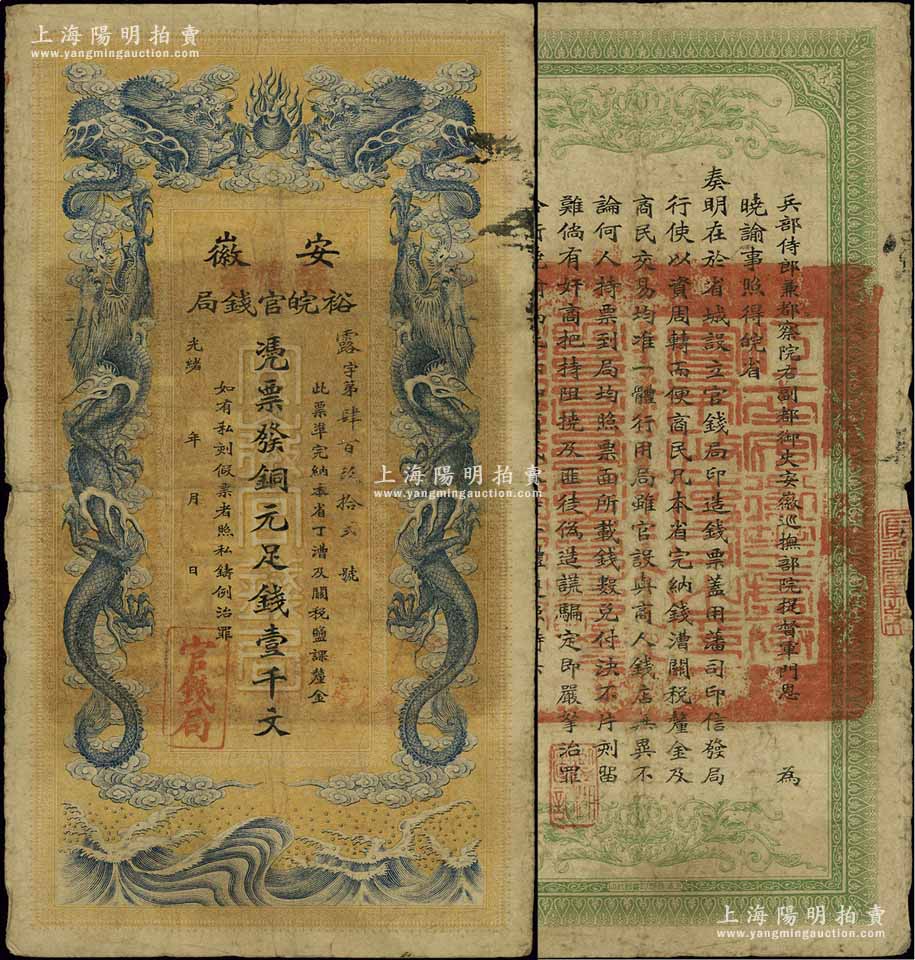 上海陽明拍賣
www.yangmingauction.com
安徽
裕皖官錢局
露字第肆百 拾 號
憑票發銅元足錢壹千文
此票準完納本省丁漕及關稅鹽課釐金
如有私刻假票者照私鑄例治罪
光緒 年 月 日
官錢局
兵部侍郎兼都察院右副都御史安徽巡撫部院提督軍門恩 為
曉諭事照得皖省
奏明在於省城設立官錢局印造錢票蓋用藩司印信發局
行使以資周轉而便商民凡本省完納錢漕關稅釐金及
商民交易均准一體行用局雖官設與商人錢店無異不
論何人持票到局均照票面所載錢數兌付決不片刻留
難倘有奸商把持阻撓及匪徒偽造謊騙定即嚴拏治罪
上海陽明拍賣
www.yangmingauction.com
上海陽明拍賣
www.yangmingauction.com